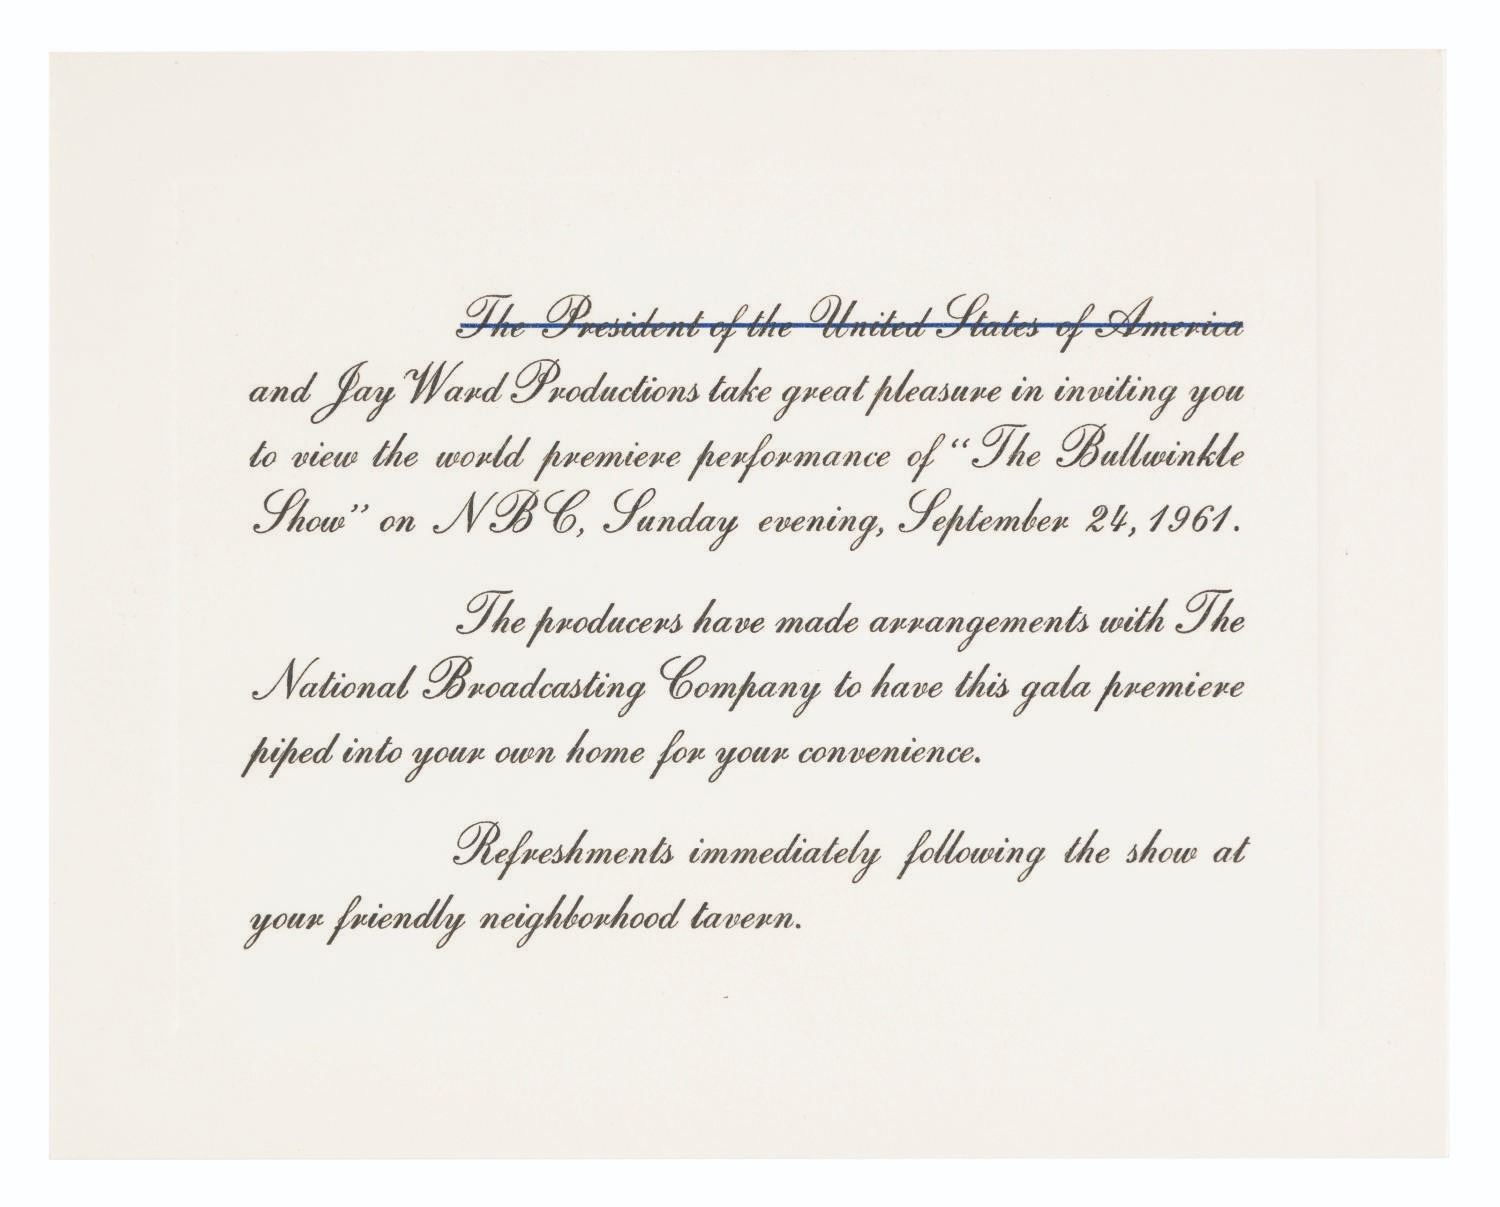 The President of the United States of America
and Jay Ward Productions take great pleasure in inviting you
to view the world premiere performance of “The Bullwinkle
Show” on NBC, Sunday evening, September 24, 1961.
The producers have made arrangements with The
National Broadcasting Company to have this gala premiere
piped into your own home for your convenience.
Refreshments immediately following the show at
your friendly neighborhood tavern.